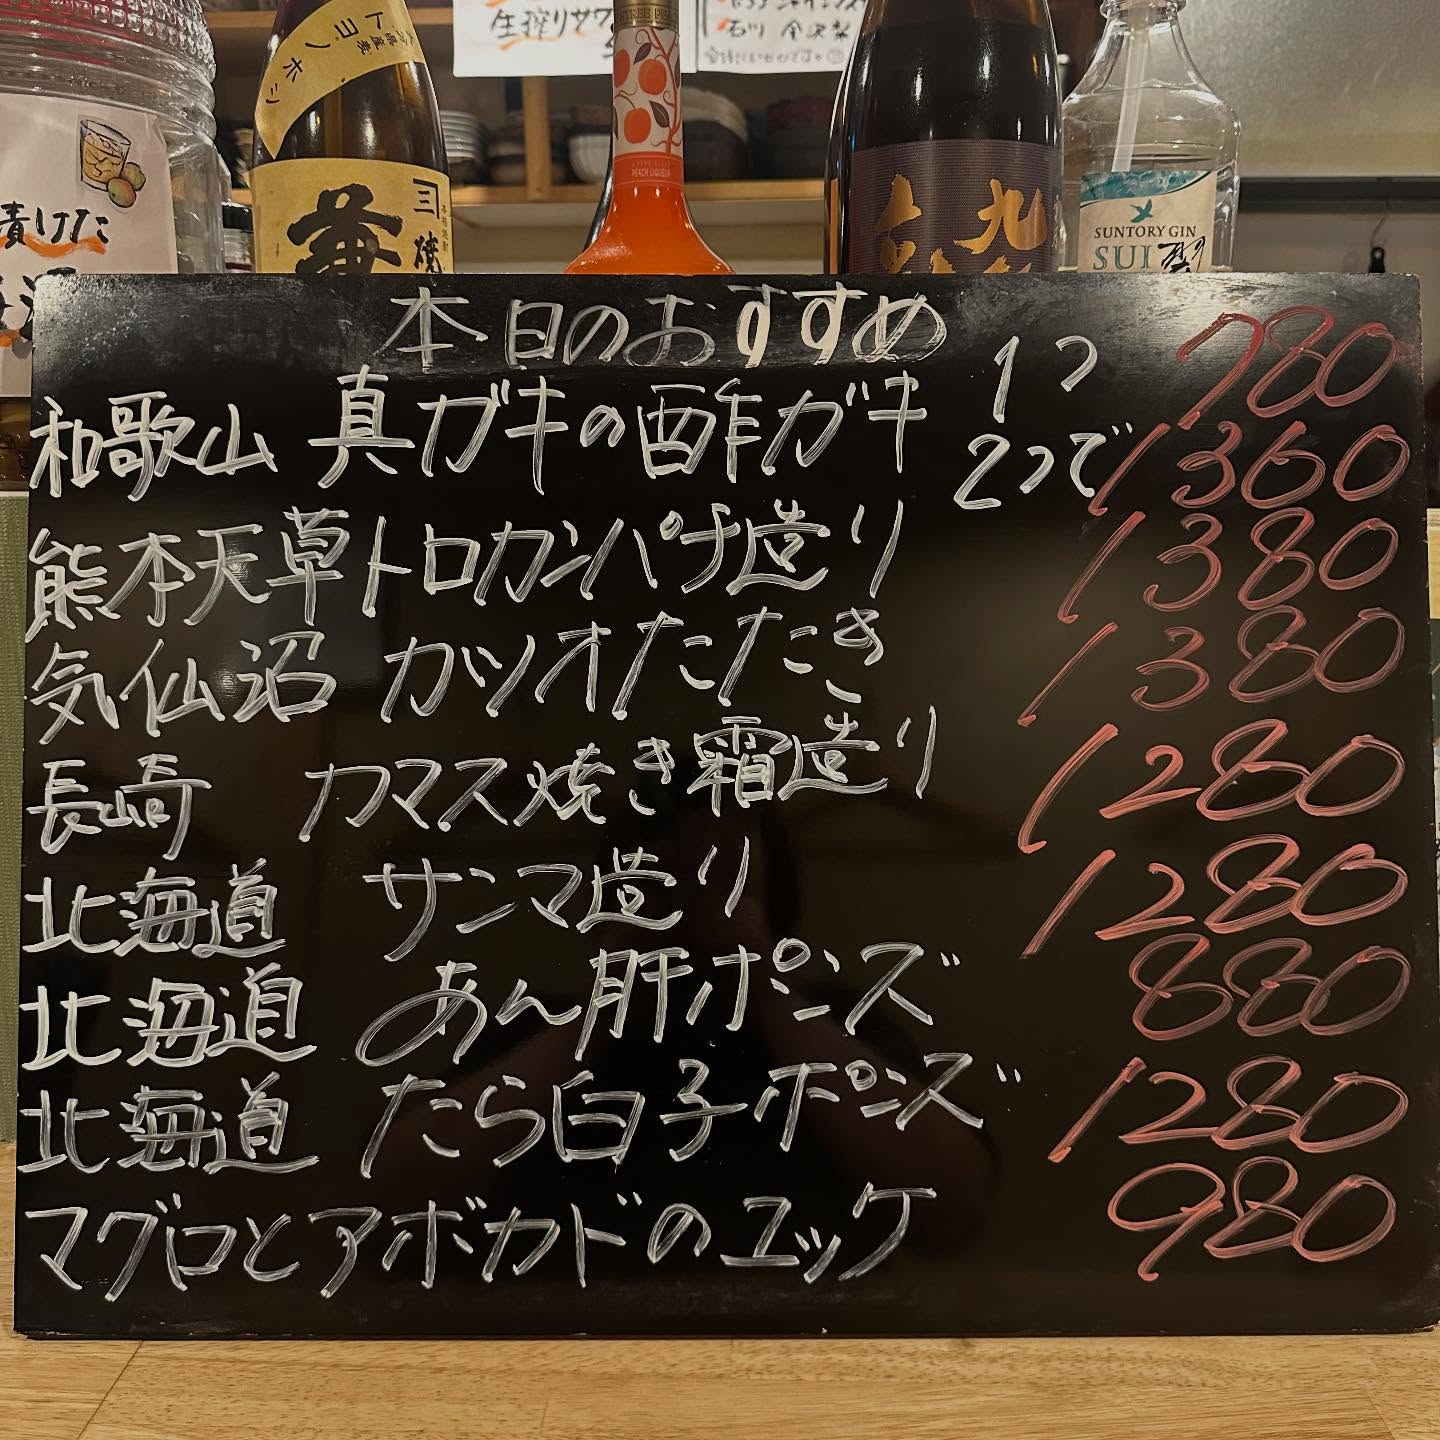 生搾りサワ
石川 金沢
トヨノホシ
三焼
PEACH LIQUEUR
九
SUNTORY GIN
SUI 翠
漬けた
本日のおすすめ
和歌山 真ガキの酢ガキ 1つ 780
2つで 1360
熊本天草トロカンパチ造り 1380
気仙沼 カツオたたき 1380
長崎 カマス焼き霜造り 1280
北海道 サンマ造り 1280
北海道 あん肝ポンズ 880
北海道 たら白子ポンズ 1280
マグロとアボカドのユッケ 980